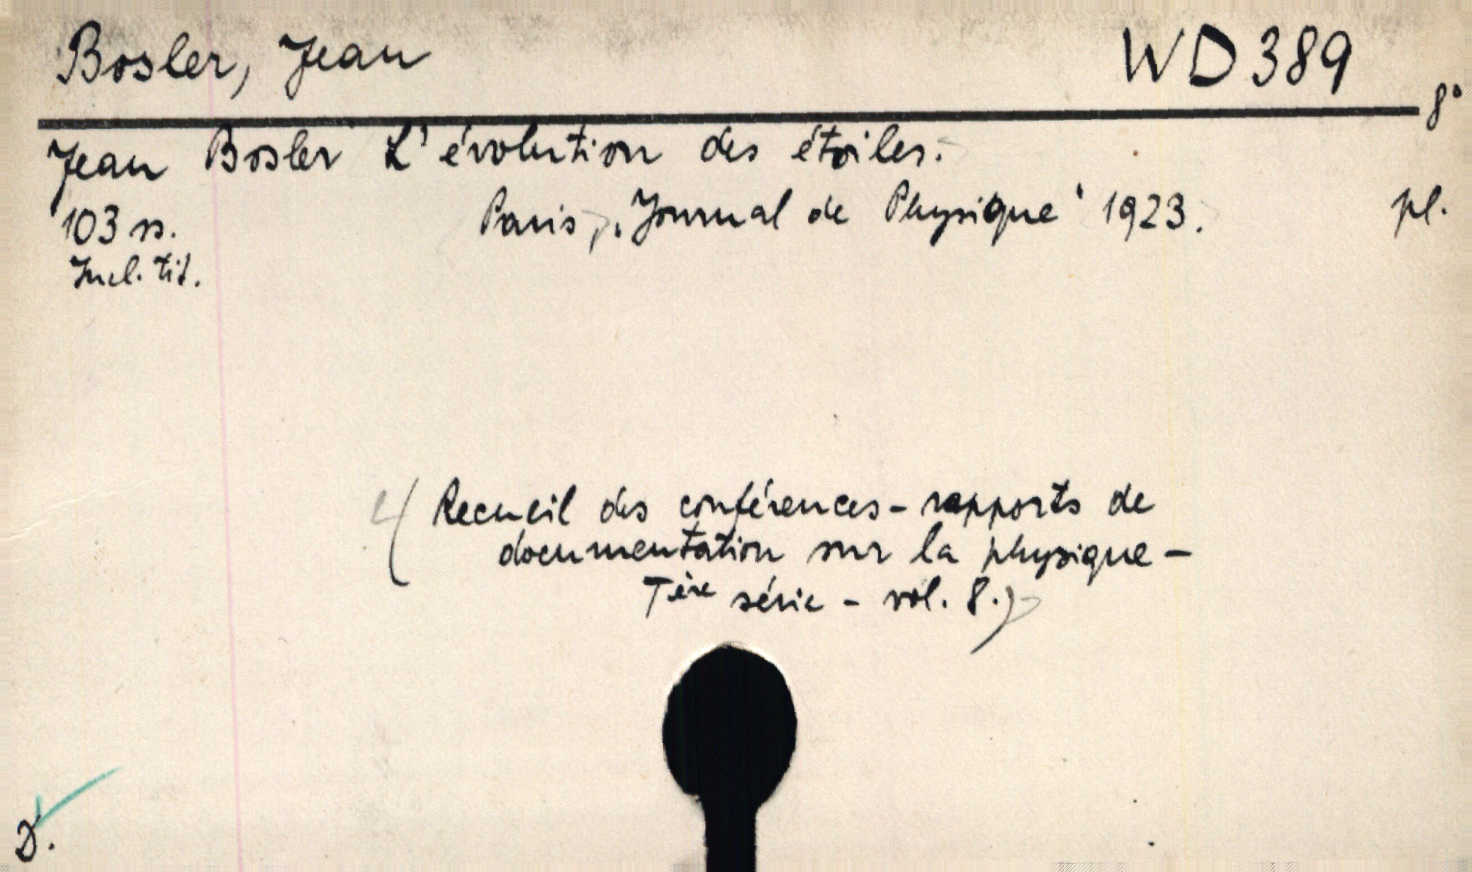 Bosler, Jean WD 389
8°
Jean Bosler L'évolution des étoiles.
103 ss. Paris, „Journal de Physique‟ 1923. pl.
Incl. tit.
(Recueil des conférences - rapports de
documentation sur la physique -
1ère série - vol. 8.)
D.